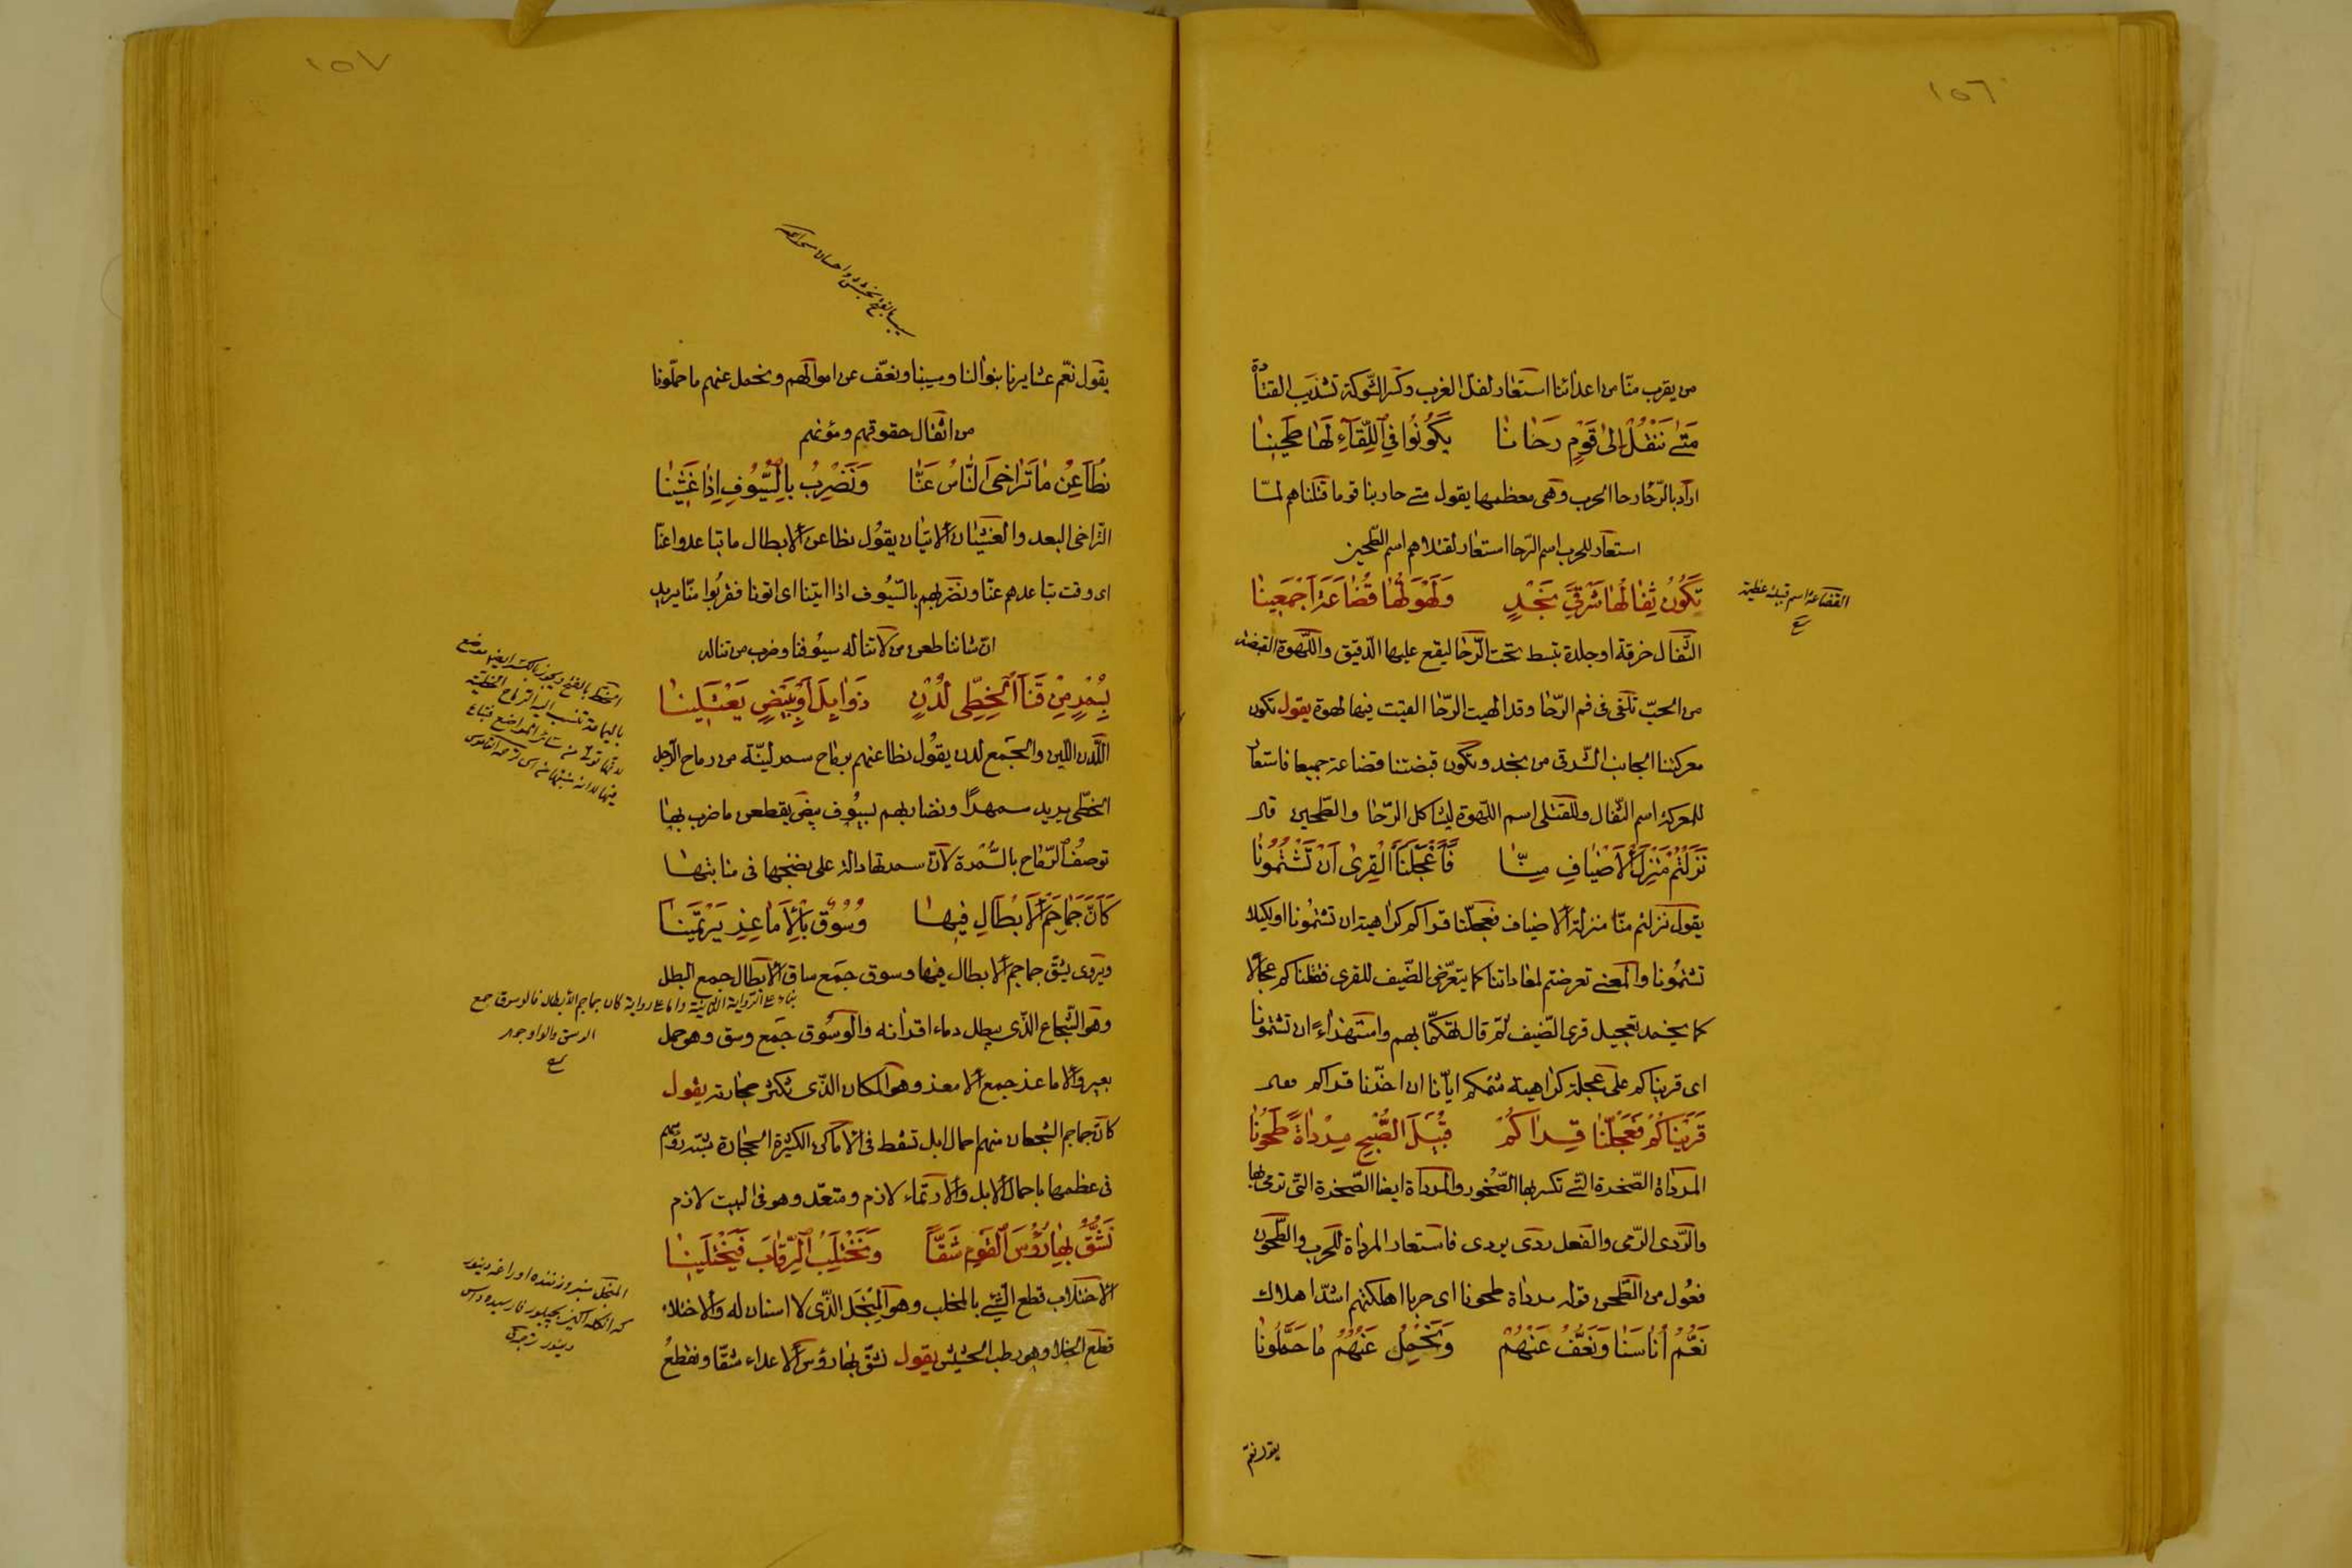 ١٥٦
من يقرب منّا من اعدائنا استعار لفلّ الغرب وكسر الشّوكة تشذيب القتادة
مَتىٰ نَنْقُلْ اِلىٰ قَوْمٍ رَحٰانٰا يَكُونُوا فِي اللِّقٰاۤءِ لَهٰا طَحِينٰا
اراد بالرّحٰا رحا الحرب وهى معظمها يقول متے حاربنا قوما قتلناهم لمّا
استعار للحرب اسم الرّحا استعار لقتلاهم اسم الطّحين
تَكُونُ ثِفٰالُهٰا شَرْقِيَّ نَجْدٍ وَلَهْوَتُهٰا قُضٰاعَةَ اَجْمَعِينٰا
القضاعة اسم قبيلة عظيمة
الثّفال خرقة او جلدة تبسط تحت الرّحٰا ليقع عليها الدّقيق واللّهوة القبضة
من الحبّ تلقى فى فم الرّحٰا وقد الهيت الرّحٰا القيت فيها لهوة يقول تكون
معركتنا الجانب الشّرقى من نجد وتكون قبضتنا قضاعة جميعا فاستعار
للمعركة اسم الثّفال وللقتلى اسم اللّهوة ليشاكل الرّحٰا والطّحين قال
نَزَلْتُمْ مَنْزِلَ الْاَضْيٰافِ مِنّٰا فَاَعْجَلْنَا الْقِرىٰ اَنْ تَشْتُمُونٰا
يقول نزلتم منّا منزلة الاضياف فعجّلنا قراكم كراهية ان تشتمُونا او لكيلا
تشتمُونا والمعنے تعرضتم لمعاداتنا كما يتعرّض الضّيف للقرى فقتلناكم عجالا
كما يحمد تعجيل قرى الضّيف ثمّ قال تهكّما بهم واستهزاءً ان تشتمونا
اى قريناكم على عجلة كراهية شتمكم ايّانا ان اخّرنا قراكم
قَرَيْنٰاكُمْ فَعَجَّلْنٰا قِرٰاكُمْ قُبَيْلَ الصُّبْحِ مِرْدٰاةً طَحُونٰا
المرداة الصّخرة الّتے تكسر بها الصّخُور والمرداة ايضا الصّخرة الّتى ترمى بها
والرّدى الرّمى والفعل ردى يردى فاستعار المرداة للحرب والطّحون
فعُول من الطّحن قوله مرداة طحونا اى حربا اهلكتهم اشدّ اهلاك
نَعُمُّ اُنٰاسَنٰا وَنَعِفُّ عَنْهُمْ وَنَحْمِلُ عَنْهُمْ مٰا حَمَّلُونٰا
يقول نعم
١٥٧
يقول نعمّ عشايرنا بنوالنا وسيبنا ونعفّ عن اموالهم ونحمل عنهم ما حمّلونا
من اثقال حقوقهم ومؤنهم
نُطٰاعِنُ مٰا تَرٰاخَى النّٰاسُ عَنّٰا وَنَضْرِبُ بِالسُّيُوفِ اِذٰا غُشِينٰا
التّراخى البعد والغشيٰان الاتيان يقُول نطاعن الابطال ما تباعدوا عنّا
اى وقت تباعدهم عنّا ونضربهم بالسّيُوف اذا اتينا اى اتونا فقربُوا منّا يريد
انّ شاننا طعن من لا تناله سيُوفنا وضرب من تناله
بِسُمْرٍ مِنْ قَنَا الْخَطِّى لُدْنٍ ذَوٰابِلَ اَوْ بِبِيضٍ يَعْتَلِينٰا
اللّدن اللّين والجمع لدن يقُول نطاعنهم برماح سمر ليّنة من رماح الرّجل
الخطّى يريد سمهرًا ونضاربهم بسيُوف بيض يقطعن ما ضرب بها
توصفُ الرّماح بالسُّمرة لانّ سمرتها دالّة على نضجها فى منابتهٰا
كَاَنَّ جَمٰاجِمَ الْاَبْطٰالِ فِيهٰا وُسُوقٌ بِالْاَمٰاعِزِ يَرْتَمِينٰا
ويروى نشقّ جماجم الابطال فيها وسوق جمع ساق الابطال جمع البطل
وهو الشّجاع الذّى يبطل دماء اقرانه والوسُوق جمع وسق وهو حمل
بعير والاماعز جمع الامعز وهو المكان الذّى تكثر حجارته يقول
كانّ جماجم الشجعان منهم احمال ابل تسقط فى الاماكن الكثيرة الحجارة شبّه رؤسهم
فى عظمها باحمال الابل والارتماء لازم ومتعدّ وهو فى البيت لازم
نَشُقُّ بِهٰا رُؤُسَ الْقَوْمِ شَقًّا وَنَخْتَلِبُ الرِّقٰابَ فَيَخْتَلِينٰا
الاختلاب قطع الشّيئ بالمخلب وهو المنجل الذّى لا اسنان له والاختلاء
قطع الخلا وهو رطب الحشيش يقول نشقّ بهٰا رؤس الاعداء شقّا ونقطعُ